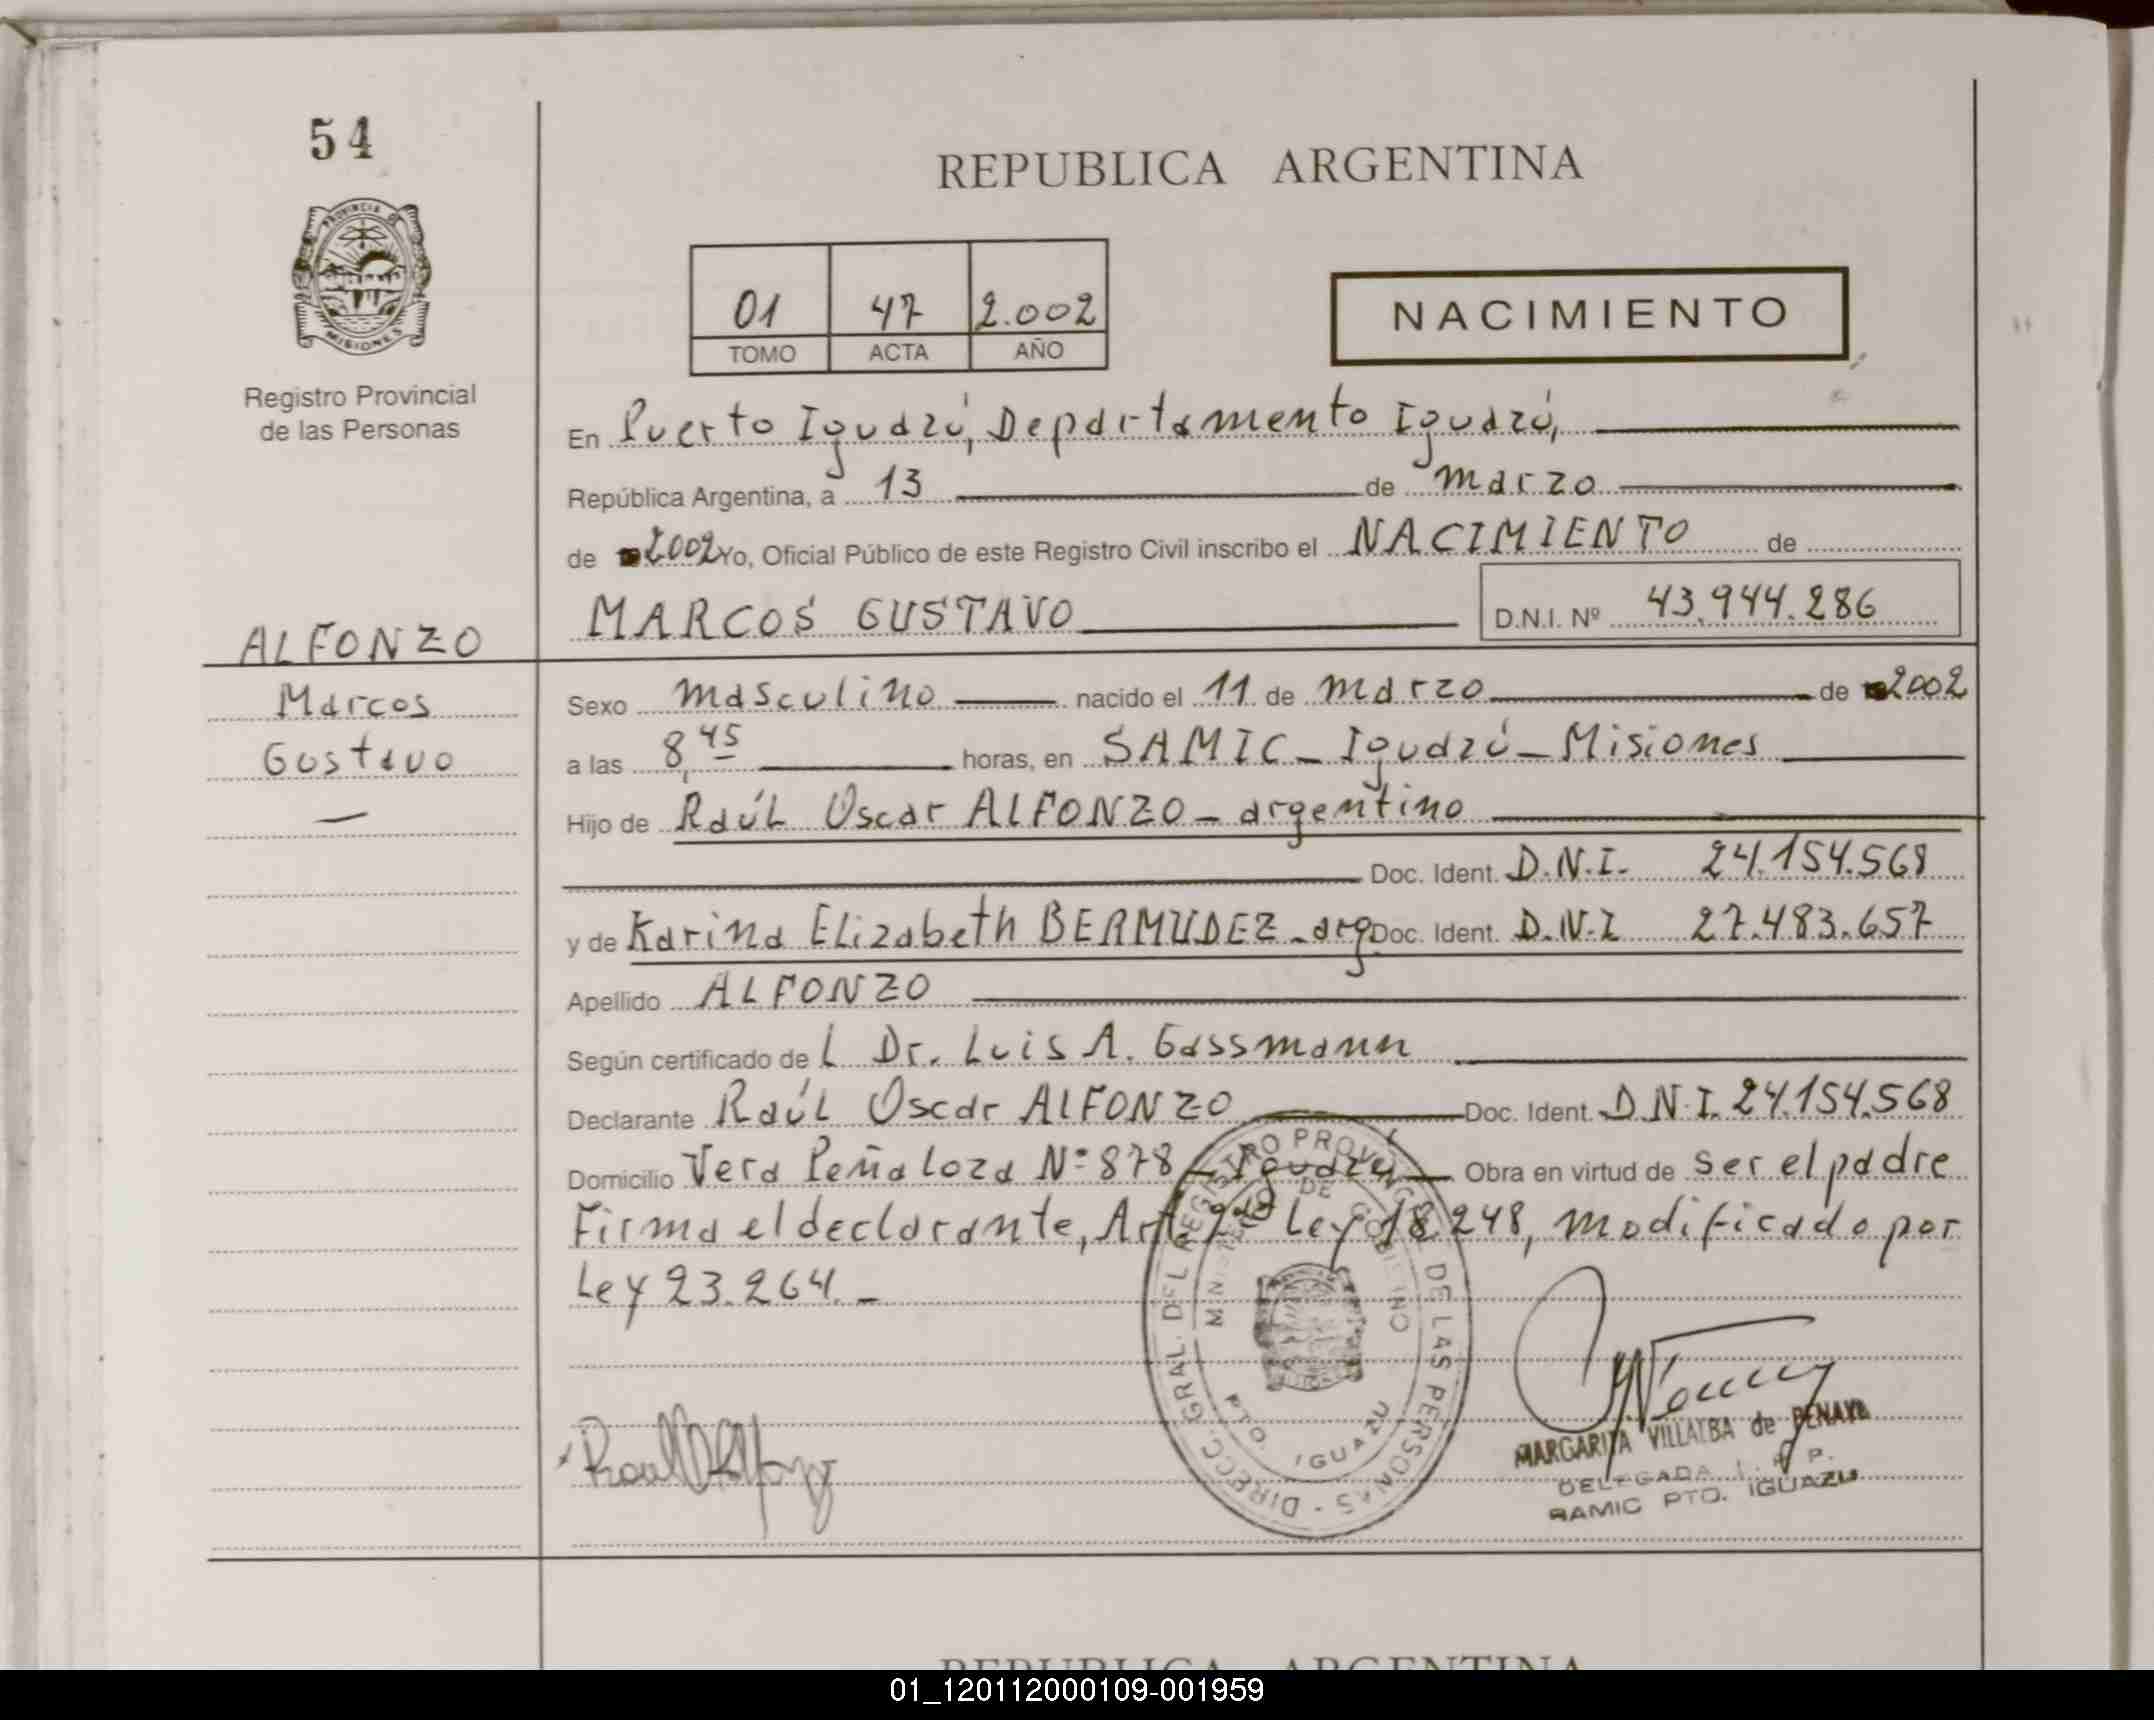 54
REPUBLICA ARGENTINA
PROVINCIA DE MISIONES
Registro Provincial
de las Personas
01 47 2.002
TOMO ACTA AÑO
NACIMIENTO
En Puerto Iguazú, Departamento Iguazú,
República Argentina, a 13 de marzo
de 2002 Yo, Oficial Público de este Registro Civil inscribo el NACIMIENTO de
MARCOS GUSTAVO D.N.I. Nº 43.944.286
ALFONZO
Marcos
Gustavo
Sexo masculino nacido el 11 de marzo de 2002
a las 8,45 horas, en SAMIC - Iguazú - Misiones
Hijo de Raúl Oscar ALFONZO - argentino
Doc. Ident. D.N.I. 24.154.568
y de Karina Elizabeth BERMUDEZ - arg. Doc. Ident. D.N.I 27.483.657
Apellido ALFONZO
Según certificado de L Dr. Luis A. Gassmann
Declarante Raúl Oscar ALFONZO Doc. Ident. D.N.I. 24.154.568
Domicilio Vera Peñaloza Nº 878 - Iguazú Obra en virtud de ser el padre
Firma el declarante, Art. Ley 18.248, modificado por
Ley 23.264. -
DIRECC. GRAL. DEL REGISTRO PROVINCIAL DE LAS PERSONAS -
MINISTERIO DE GOBIERNO
PTO. IGUAZU
MARGARITA VILLALBA de BENAYA
DELEGADA
SAMIC PTO. IGUAZU
REPUBLICA ARGENTINA
01_120112000109-001959